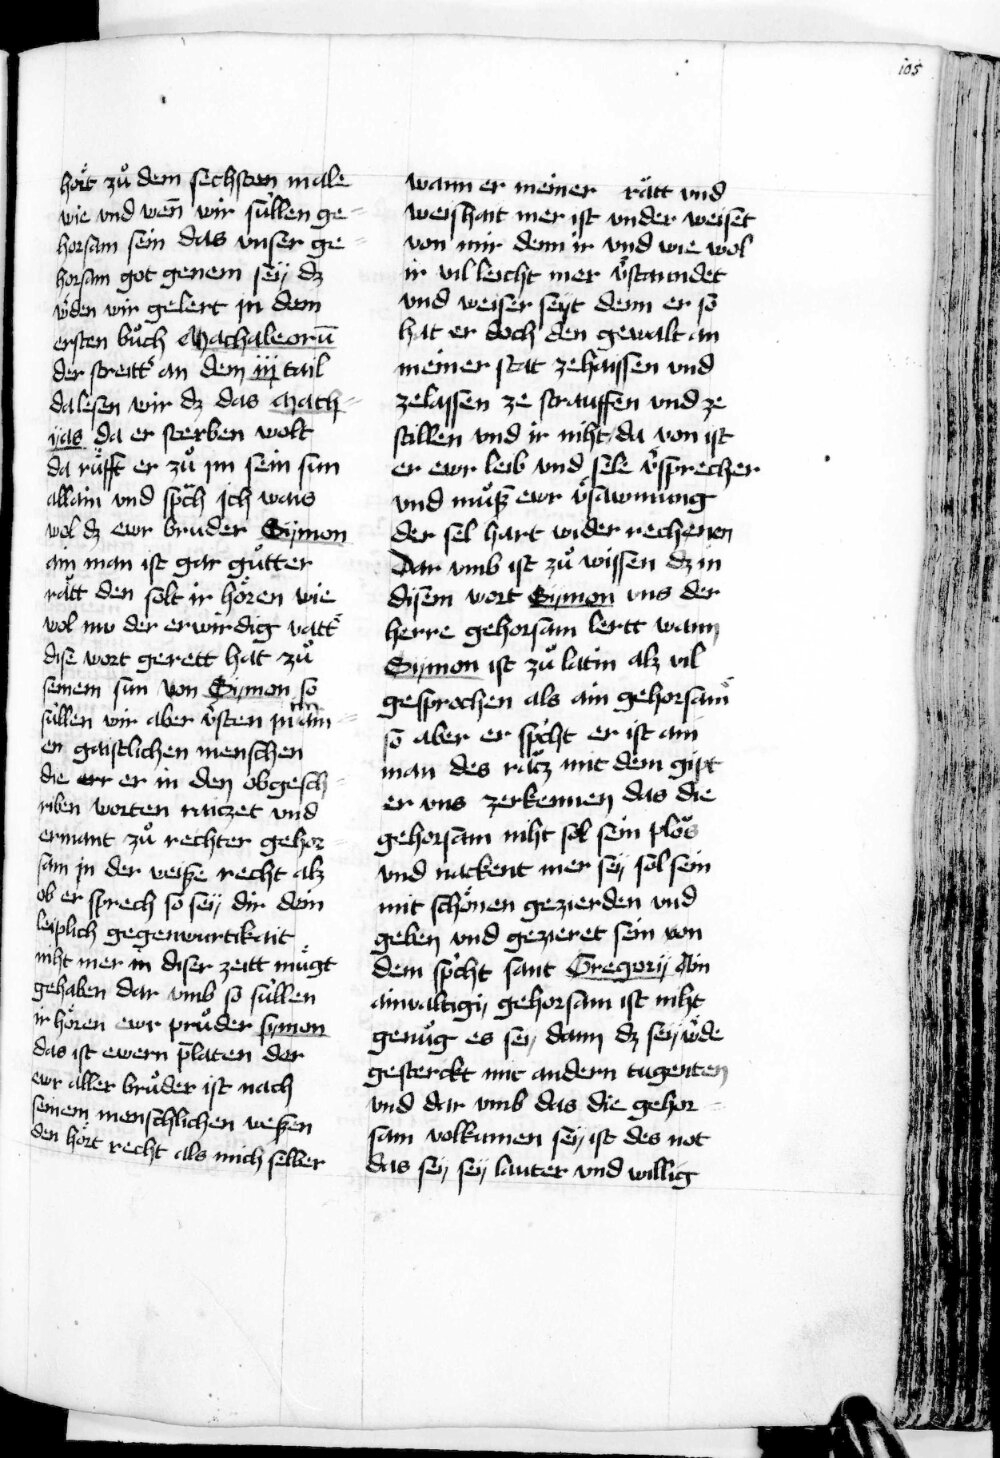 105
hoͤrt zuͦ dem sechsten male
wie vnd wen̄ wir süllen ge=
horsam sein das vnser ge=
horsam got genem seÿ dz
wͤden wir gelert jn dem
ersten buͦch Machaleorū
der streittͤ an dem iij tail
da lesen wir dz das Math=
ÿas da er sterben wolt
da ruͤfft er zuͦ jm sein sun
allain vnd sp̄ch Ich wais
wol dz ewr bruder Sÿmon
ain man ist gar guͦtter
raͤtt den solt ir hoͤren wie
wol nw der erwirdig vattͤ
dise wort gerett hat zuͦ
seinem sun von Sÿmon so
süllen wir aber vͤsten jn ain=
en gaistlichen menschen
die er in den obgesch=
riben worten raiczet vnd
ermant zuͦ rechter gehor=
sam jn der weisze recht alz
ob er sprech so seÿ dir dein
leiplich gegenwurtikait
niht mer in diser zeitt muͤgt
gehaben dar vmb so süllen
ir hoͤren ewr pruͦder sÿmon
das ist ewern p̄laten der
ewr aller bruͦder ist nach
seinem menschlichen weszen
den hoͤrt recht als mich selber
wann er meiner raͤtt vnd
weishait mer ist vnder weiset
von mir denn ir vnd wie wol
ir vil leicht mer vͤstaundet
vnd weiser seÿt denn er so
hat er doch den gewalt an
meiner stat zehaissen vnd
zelassen ze strauffen vnd ze
stillen vnd ir niht da von ist
er ewr leib vnd sele vͤsprecher
vnd muͦsz ewr vͤsawmung
der sel hart wider rechenen
Dar vmb ist zuͦ wissen dz in
disem wort Sÿmon vns der
herre gehorsam lertt wann
Sÿmon ist zuͦ latin alz vil
gesprochen als ain gehorsamͤ
so aber er sp̄cht er ist ain
man des raͤtz mit dem gipt
er vns zerkennen das die
gehorsam niht sol sein plos
vnd nackent mer seÿ sol sein
mit schoͤnen gezierden vnd
geben vnd gezieret sein von
dem sp̄cht sant Gregorij Ain
ainualtigÿ gehorsam ist niht
genuͦg es seÿ dann dz seÿ wͤde
gesterckt mit andern tugenten
vnd dar vmb das die gehor=
sam volkumen seÿ ist des not
das seÿ seÿ lauter vnd willig